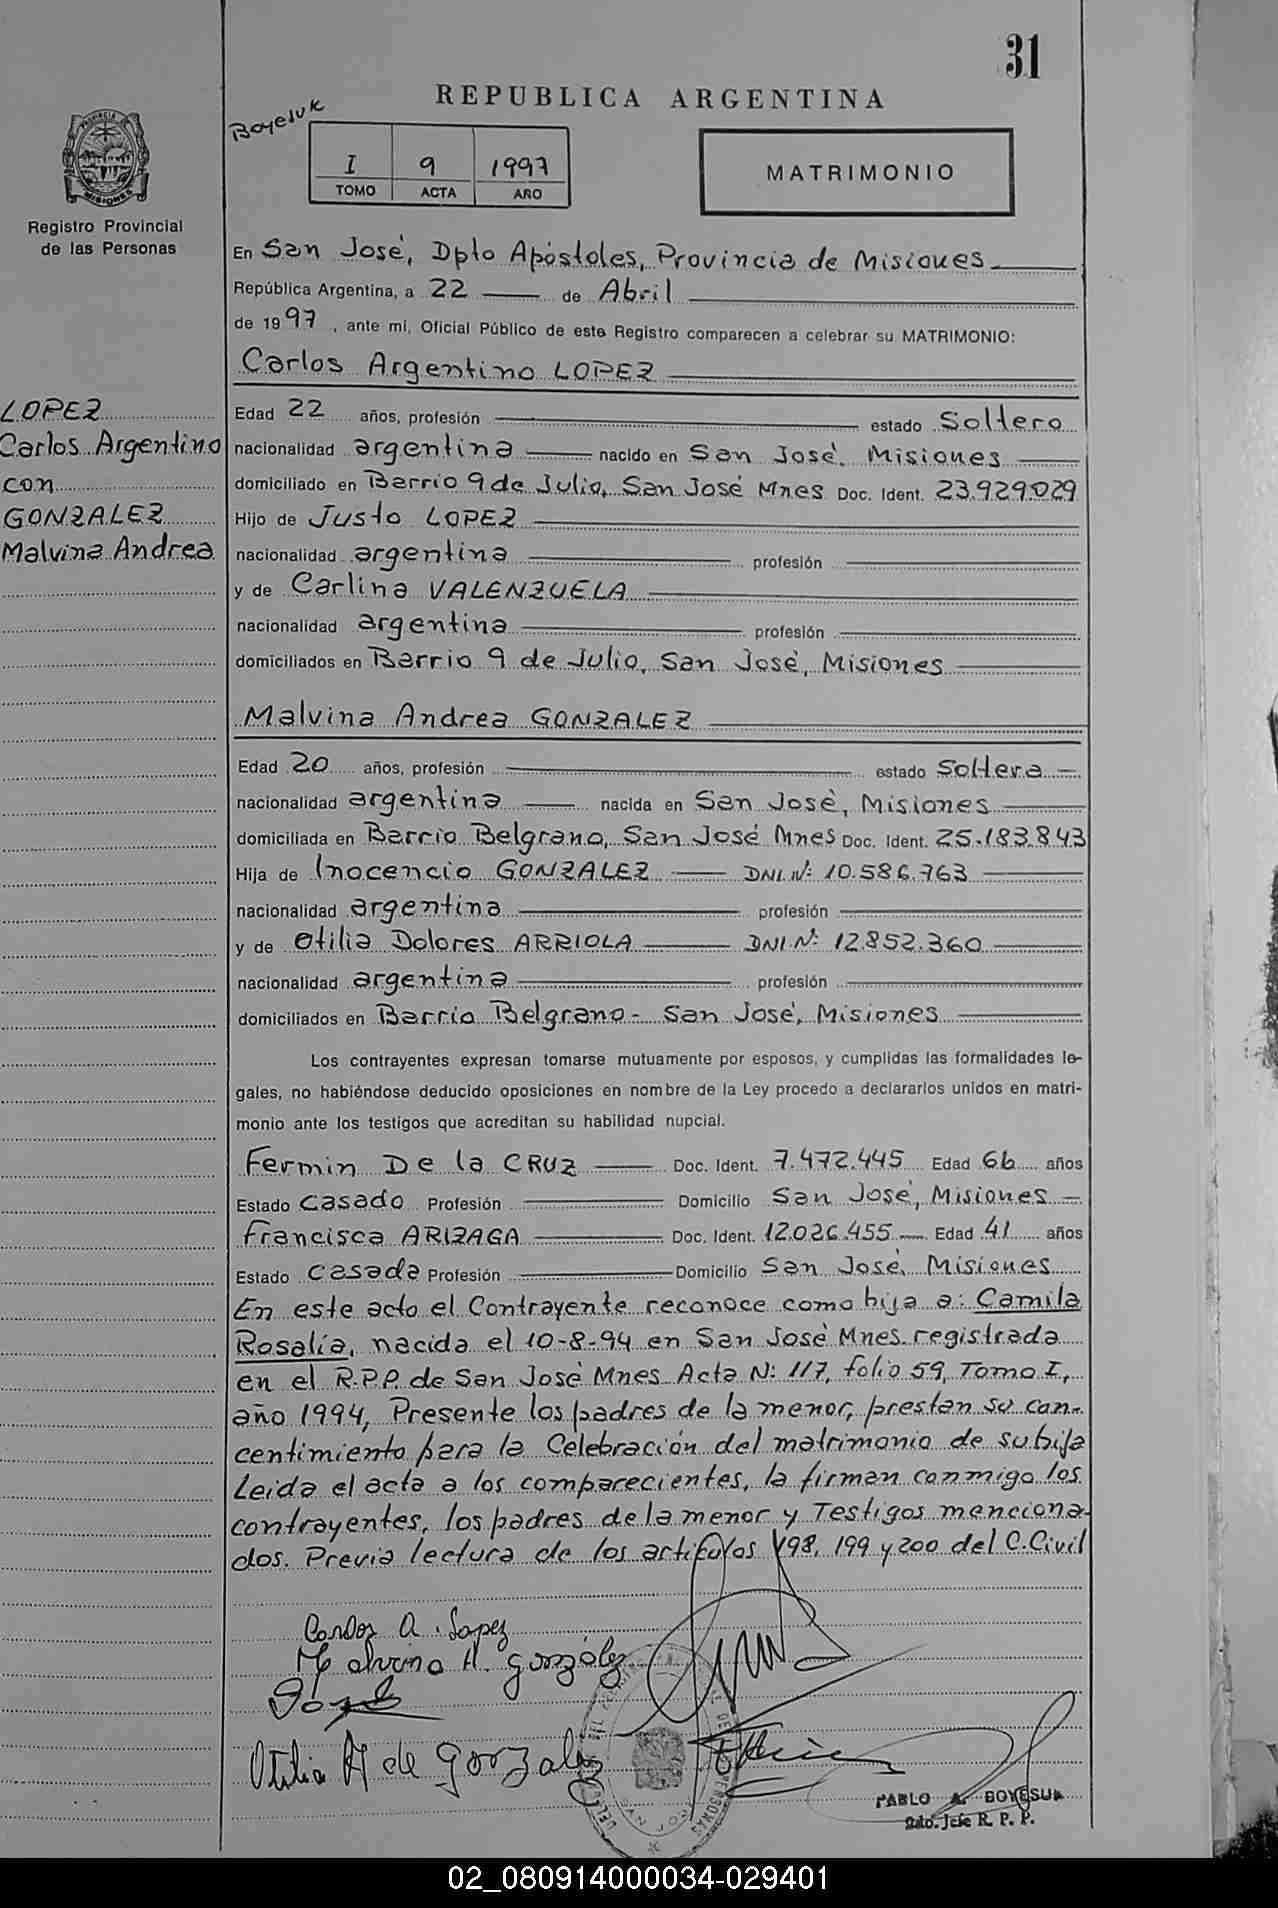 31
REPUBLICA ARGENTINA
Boyesuk
I 9 1997
TOMO ACTA AÑO
MATRIMONIO
PROVINCIA DE MISIONES
Registro Provincial
de las Personas
En San José, Dpto Apóstoles, Provincia de Misiones
República Argentina, a 22 de Abril
de 1997, ante mi, Oficial Público de este Registro comparecen a celebrar su MATRIMONIO:
Carlos Argentino LOPEZ
LOPEZ
Carlos Argentino
con
GONZALEZ
Malvina Andrea
Edad 22 años, profesión estado Soltero
nacionalidad argentina nacido en San José, Misiones
domiciliado en Barrio 9 de Julio, San José Mnes Doc. Ident. 23.929.029
Hijo de Justo LOPEZ
nacionalidad argentina profesión
y de Carlina VALENZUELA
nacionalidad argentina profesión
domiciliados en Barrio 9 de Julio, San José, Misiones
Malvina Andrea GONZALEZ
Edad 20 años, profesión estado Soltera
nacionalidad argentina nacida en San José, Misiones
domiciliada en Barrio Belgrano, San José Mnes Doc. Ident. 25.183.843
Hija de Inocencio GONZALEZ DNI.Nº: 10.586.763
nacionalidad argentina profesión
y de Otilia Dolores ARRIOLA DNI.Nº: 12.852.360
nacionalidad argentina profesión
domiciliados en Barrio Belgrano - San José, Misiones
Los contrayentes expresan tomarse mutuamente por esposos, y cumplidas las formalidades le-
gales, no habiéndose deducido oposiciones en nombre de la Ley procedo a declararlos unidos en matri-
monio ante los testigos que acreditan su habilidad nupcial.
Fermin De la CRUZ Doc. Ident. 7.472.445 Edad 66 años
Estado Casado Profesión Domicilio San José, Misiones
Francisca ARIZAGA Doc. Ident. 12.026.455 Edad 41 años
Estado Casada Profesión Domicilio San José, Misiones
En este acto el Contrayente reconoce como hija a: Camila
Rosalía, nacida el 10-8-94 en San José Mnes. registrada
en el R.P.P. de San José Mnes Acta N: 117, folio 59, Tomo I,
año 1994, Presente los padres de la menor, prestan su con-
centimiento para la Celebración del matrimonio de su hija
Leida el acta a los comparecientes, la firman conmigo los
contrayentes, los padres de la menor y Testigos menciona-
dos. Previa lectura de los artículos 198, 199 y 200 del C. Civil
Carlos A. Lopez
Malvina A. González
Otilia A de Gonzalez
PABLO A. BOYESUK
Sdo. Jefe R. P. P.
02_080914000034-029401